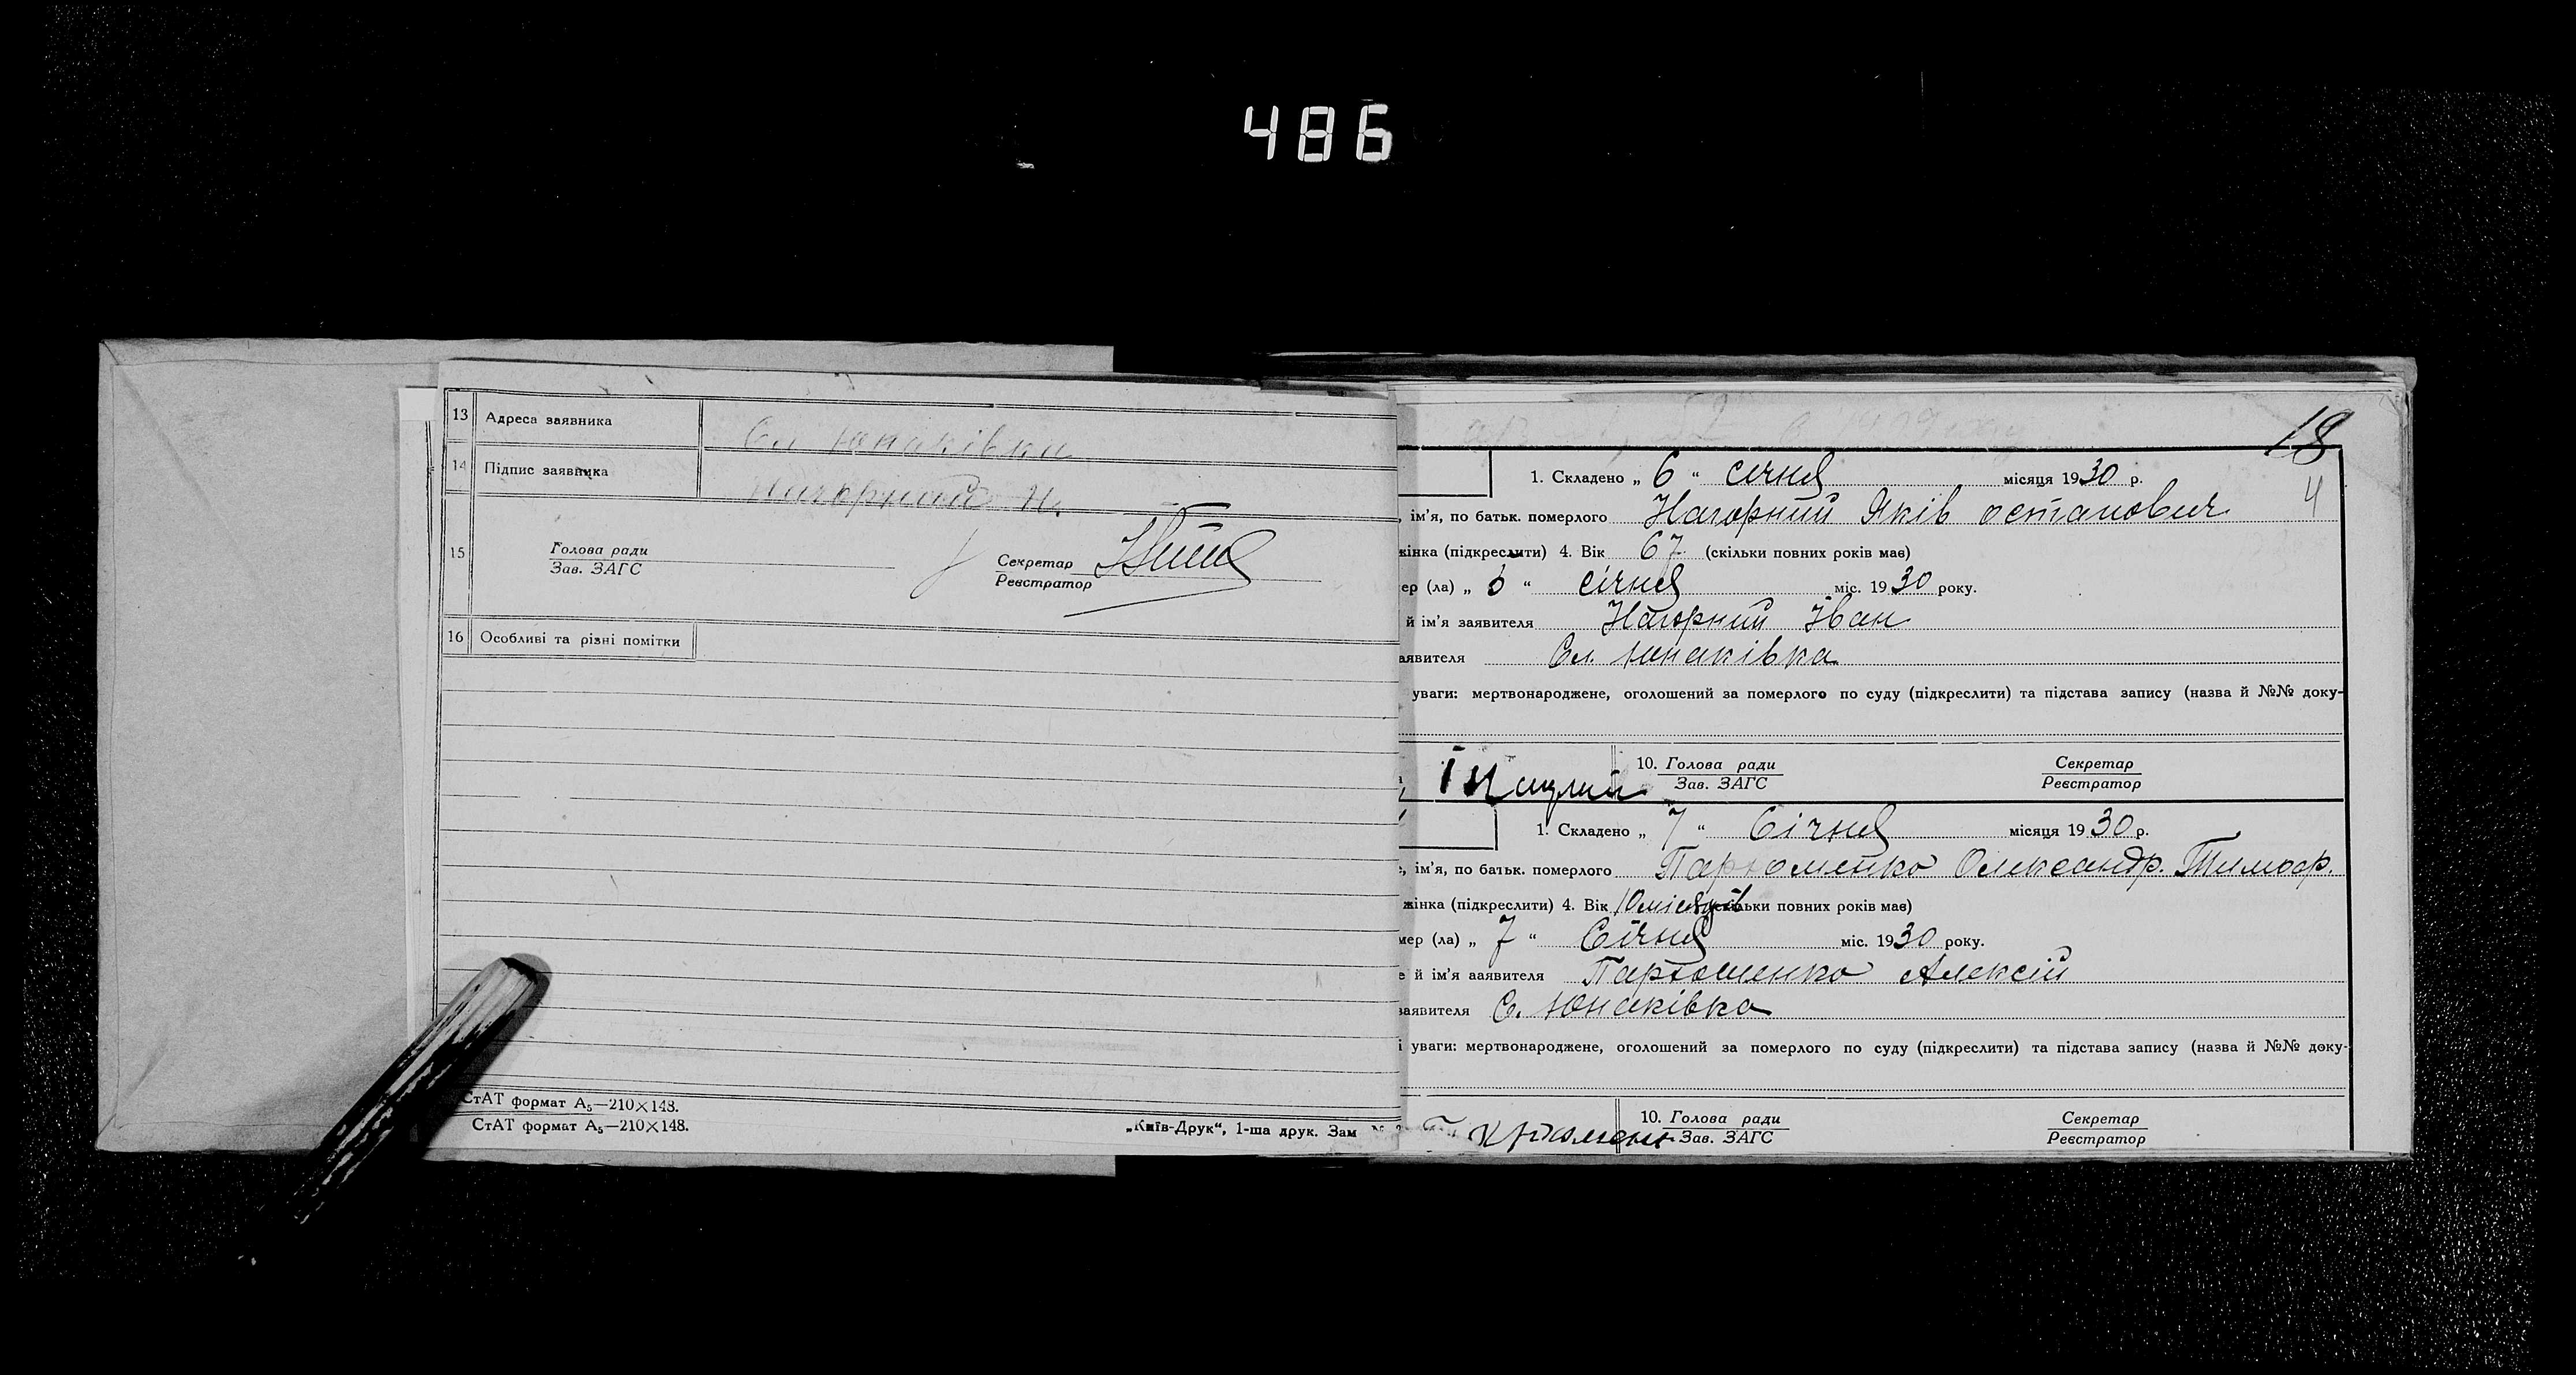 486
13 Адреса заявника Сл Юнаківка
14 Підпис заявника Нагорний
15 Голова ради
Зав. ЗАГС
Секретар
Реєстратор
16 Особливі та різні помітки
СтАТ формат А₅—210×148.
СтАТ формат А₅—210×148.
„Київ-Друк“, 1-ша друк. Зам
18
4
1. Складено „ 6 “ січня місяця 1930 р.
ім’я, по батьк. померлого Нагорний Яків остапович
жінка (підкреслити) 4. Вік 67 (скільки повних років має)
ер (ла) „ 6 “ січня міс. 1930 року.
й ім’я заявителя Нагорний Іван
аявителя Сл. Юнаківка
уваги: мертвонароджене, оголошений за померлого по суду (підкреслити) та підстава запису (назва й №№ доку-
10. Голова ради
Зав. ЗАГС
Секретар
Реєстратор
1. Складено „ 7 “ Січня місяця 1930 р.
, ім’я, по батьк. померлого Пархоменко Олександр. Тимоф.
жінка (підкреслити) 4. Вік 10 місяців скільки повних років має)
мер (ла) „ 7 “ Січня міс. 1930 року.
е й ім’я заявителя Пархоменко Алексій
заявителя С. Юнаківка
і уваги: мертвонароджене, оголошений за померлого по суду (підкреслити) та підстава запису (назва й №№ доку-
10. Голова ради
Зав. ЗАГС
Секретар
Реєстратор